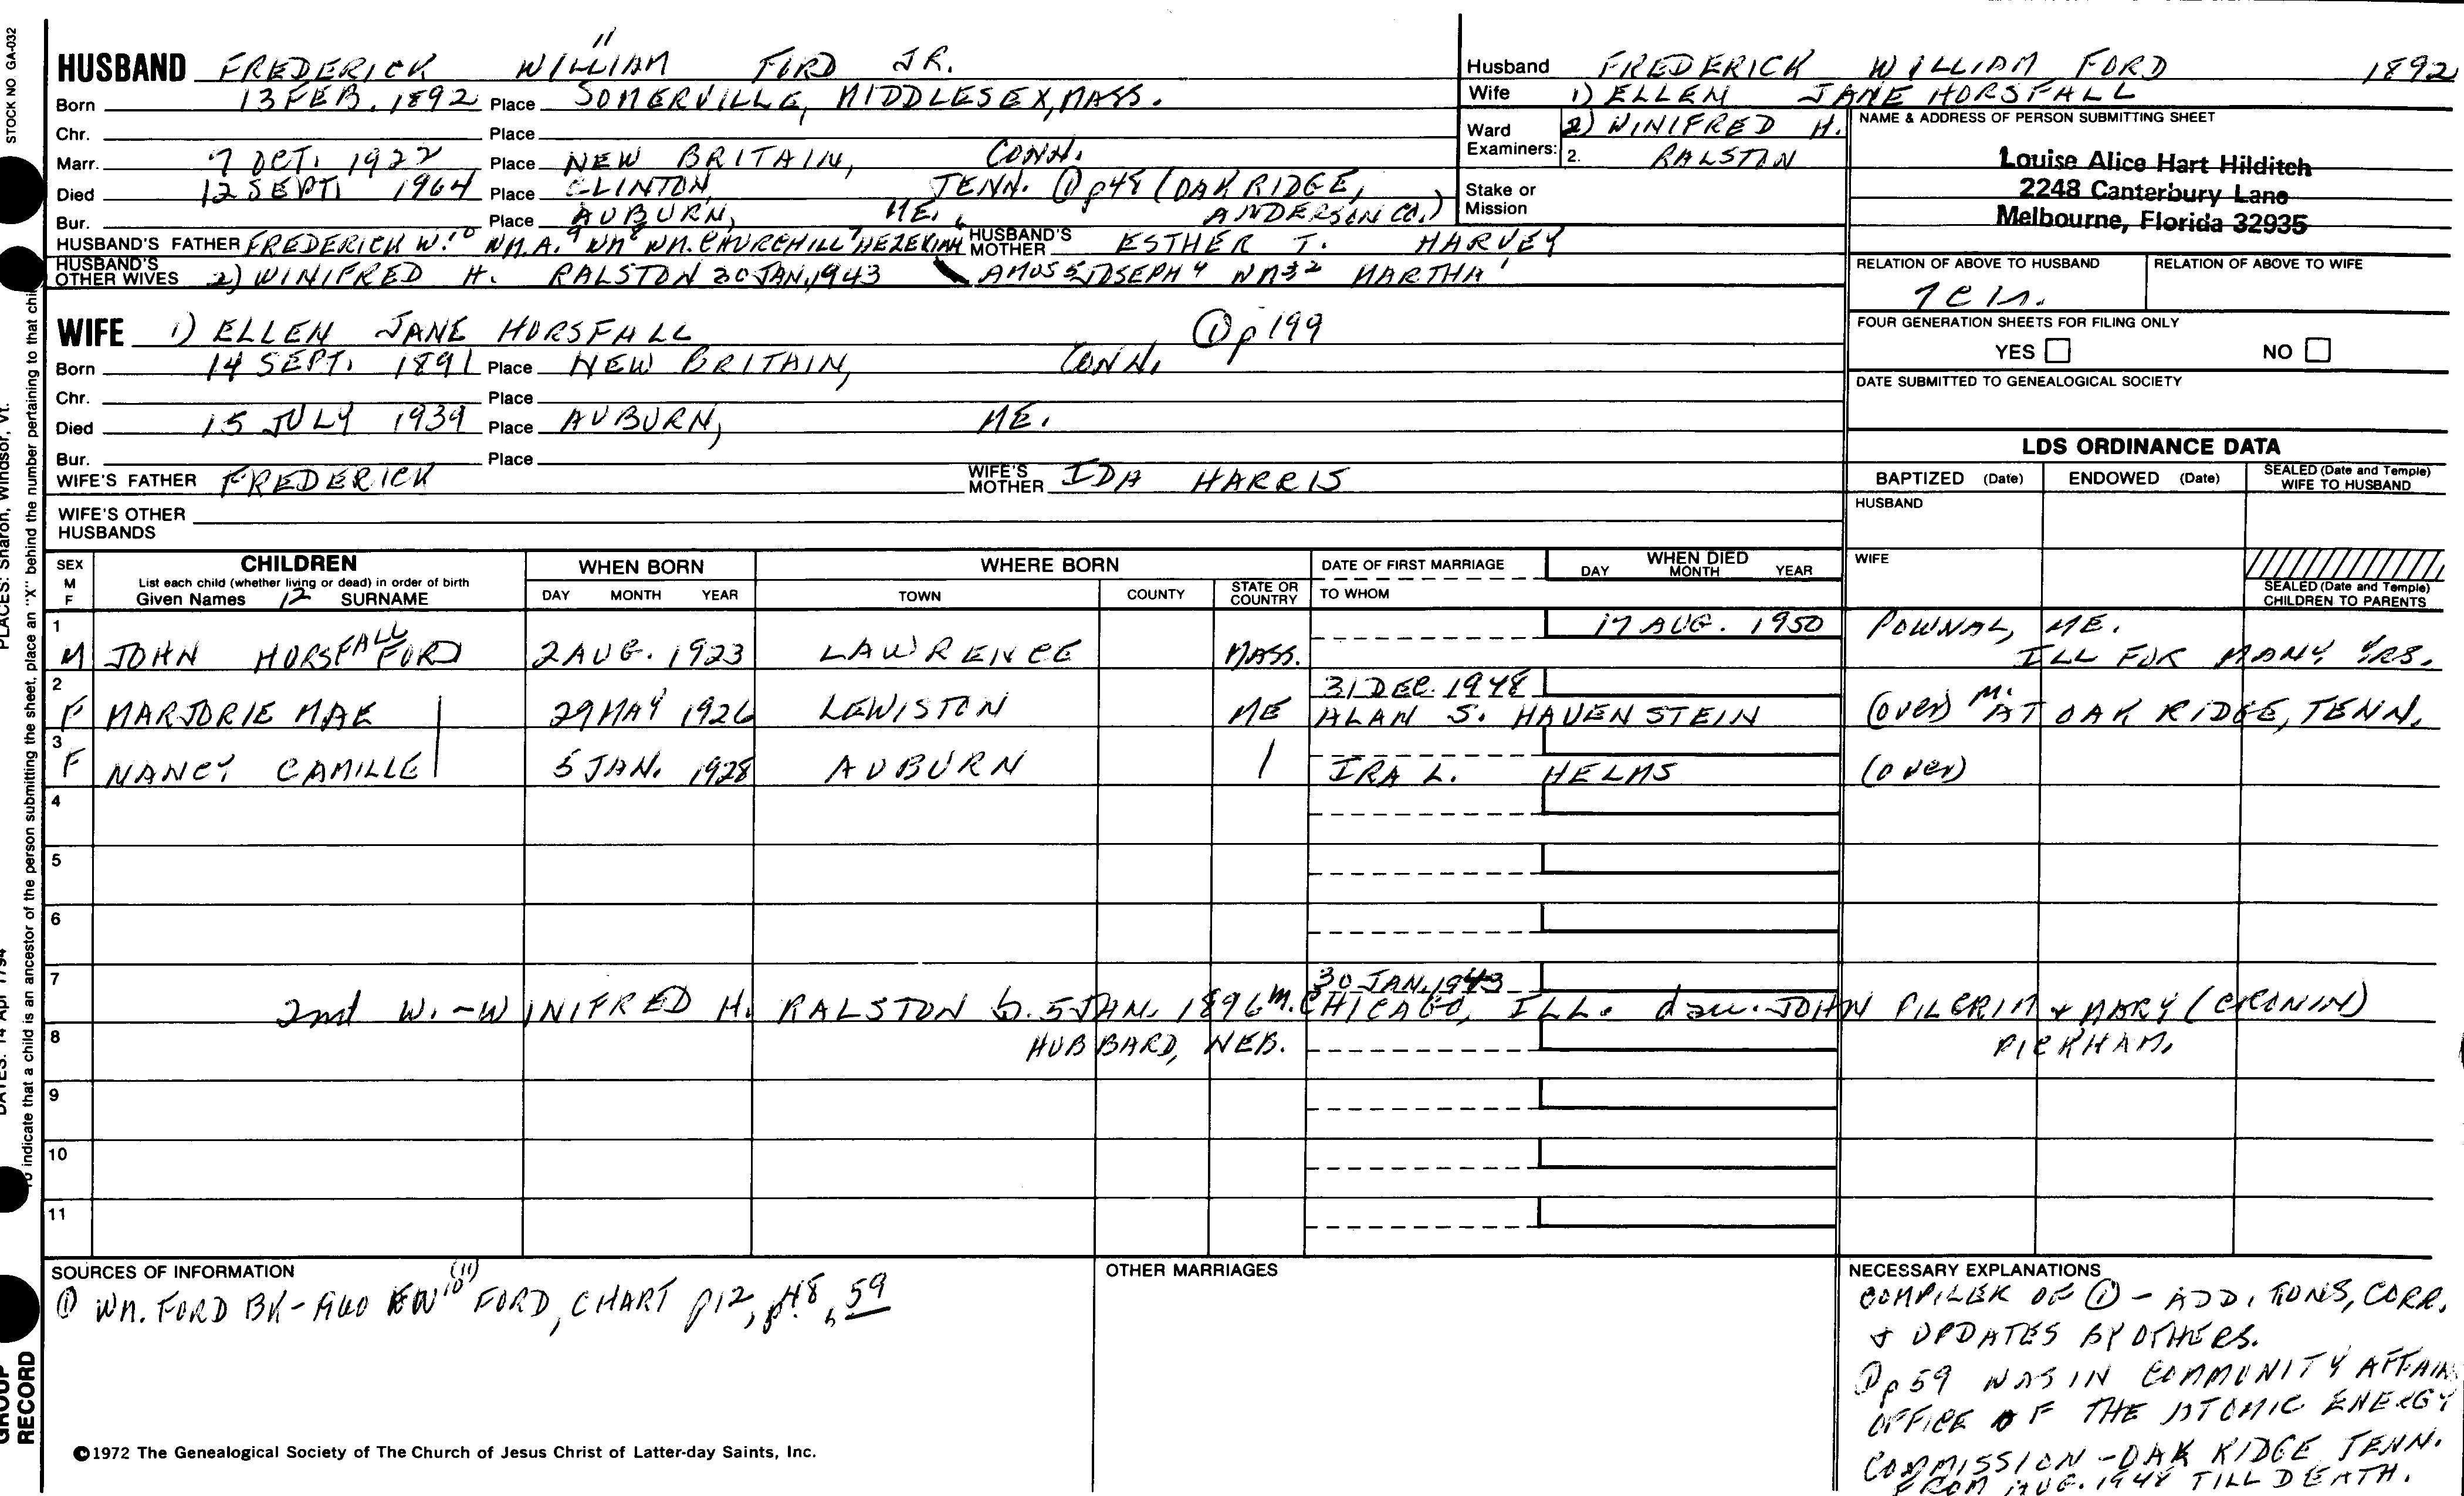 STOCK NO GA-032
HUSBAND FREDERICK WILLIAM 11 FORD JR.
Born 13 FEB. 1892 Place SOMERVILLE, MIDDLESEX, MASS.
Chr. Place
Marr. 7 OCT. 1922 Place NEW BRITAIN, CONN.
Died 12 SEPT. 1964 Place CLINTON, TENN. ① p48 (OAK RIDGE,
Bur. Place AUBURN, ME. ANDERSON CO.)
HUSBAND'S FATHER FREDERICK W.10 WM.A.9 WM8 WM. CHURCHILL7 HEZEKIAH6 HUSBAND'S MOTHER ESTHER T. HARVEY
HUSBAND'S OTHER WIVES 2) WINIFRED H. RALSTON 30 JAN. 1943 AMOS5 JOSEPH4 WM32 MARTHA1
WIFE 1) ELLEN JANE HORSFALL ① p199
Born 14 SEPT. 1891 Place NEW BRITAIN, CONN.
Chr. Place
Died 15 JULY 1939 Place AUBURN, ME.
Bur. Place
WIFE'S FATHER FREDERICK WIFE'S MOTHER IDA HARRIS
WIFE'S OTHER
HUSBANDS
Husband FREDERICK WILLIAM FORD 1892
Wife 1) ELLEN JANE HORSFALL
Ward 2) WINIFRED H.
Examiners: 2. RALSTON
Stake or
Mission
NAME & ADDRESS OF PERSON SUBMITTING SHEET
Louise Alice Hart Hilditch
2248 Canterbury Lane
Melbourne, Florida 32935
RELATION OF ABOVE TO HUSBAND RELATION OF ABOVE TO WIFE
FOUR GENERATION SHEETS FOR FILING ONLY
YES NO
DATE SUBMITTED TO GENEALOGICAL SOCIETY
LDS ORDINANCE DATA
BAPTIZED (Date) ENDOWED (Date) SEALED (Date and Temple) WIFE TO HUSBAND
HUSBAND
WIFE
SEALED (Date and Temple) CHILDREN TO PARENTS
SEX M F CHILDREN
List each child (whether living or dead) in order of birth
Given Names 12 SURNAME
WHEN BORN
DAY MONTH YEAR
WHERE BORN
TOWN COUNTY STATE OR COUNTRY
DATE OF FIRST MARRIAGE
TO WHOM
WHEN DIED
DAY MONTH YEAR
1 17 AUG. 1950 POWNAL, ME.
M JOHN HORSFALL FORD 2 AUG. 1923 LAWRENCE MASS. ILL FOR MANY YRS.
2 31 DEC. 1948
F MARJORIE MAE 29 MAY 1926 LEWISTON ME ALAN S. HAUENSTEIN (over) M. AT OAK RIDGE, TENN.
3
F NANCY CAMILLE 5 JAN. 1928 AUBURN IRA L. HELMS (over)
4
5
6
7 30 JAN. 1943
2nd W. - WINIFRED H. RALSTON b. 5 JAN. 1896 m. CHICAGO, ILL. dau. JOHN PILGRIM & MARY (CRONIN)
8 HUBBARD, NEB. PICKHAM.
9
10
11
SOURCES OF INFORMATION
① WM. FORD BK - FORD, CHART p12, p48, 59
OTHER MARRIAGES
NECESSARY EXPLANATIONS
COMPILER OF ① - ADDITIONS, CORR.
& UPDATES BY OTHERS.
① p59 WAS IN COMMUNITY AFFAIRS
OFFICE OF THE ATOMIC ENERGY
COMMISSION - OAK RIDGE TENN.
FROM AUG. 1948 TILL DEATH.
©1972 The Genealogical Society of The Church of Jesus Christ of Latter-day Saints, Inc.
PLACES: Sharon, Windsor, Vt.
DATES: 14 Apr 1794
To indicate that a child is an ancestor of the person submitting the sheet, place an "X" behind the number pertaining to that child
GROUP
RECORD